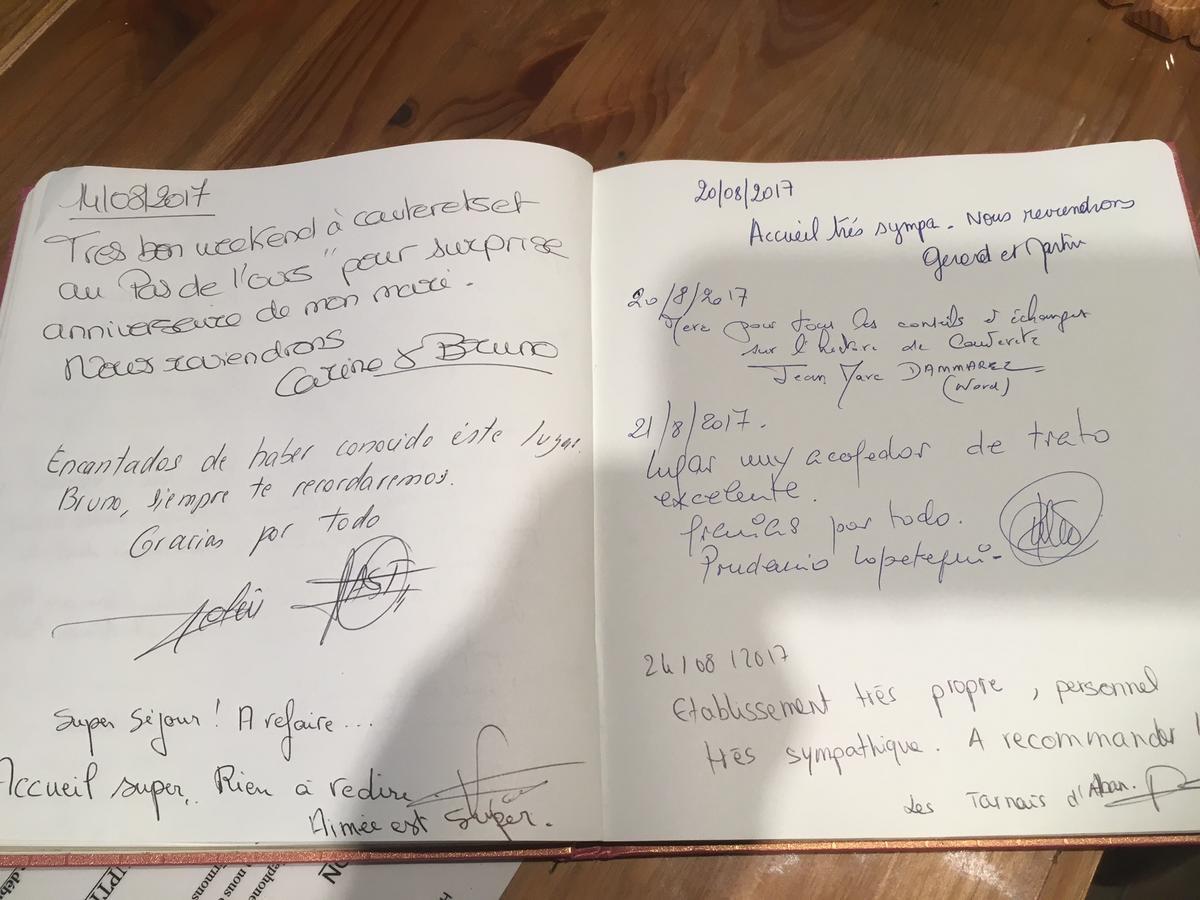 14/08/2017
Tres bon weekend à cauteretset
au Pas de l'ours" pour surprise
anniversaire de mon mari.
Nous reviendrons
Carine & Bruno
Encantados de haber conocido éste lugar.
Bruno, siempre te recordaremos.
Gracias por todo
Super séjour! A refaire...
Accueil super. Rien à redire
Aimée est super.
20/08/2017
Accueil très sympa. Nous reviendrons
Gerard et Martin
20/8/2017
Merc pour tous les conseils et échanges
sur l'histoire de Cauteretz
Jean Marc DAMMAREZ
(Nord)
21/8/2017.
lugar muy acojedor de trato
excelente.
gracias por todo.
Prudencio Lopetegui-
24/08/2017
Etablissement très propre, personnel
très sympathique. A recommander !
Les Tarnais d'Alban.
ephone
nous
rmons